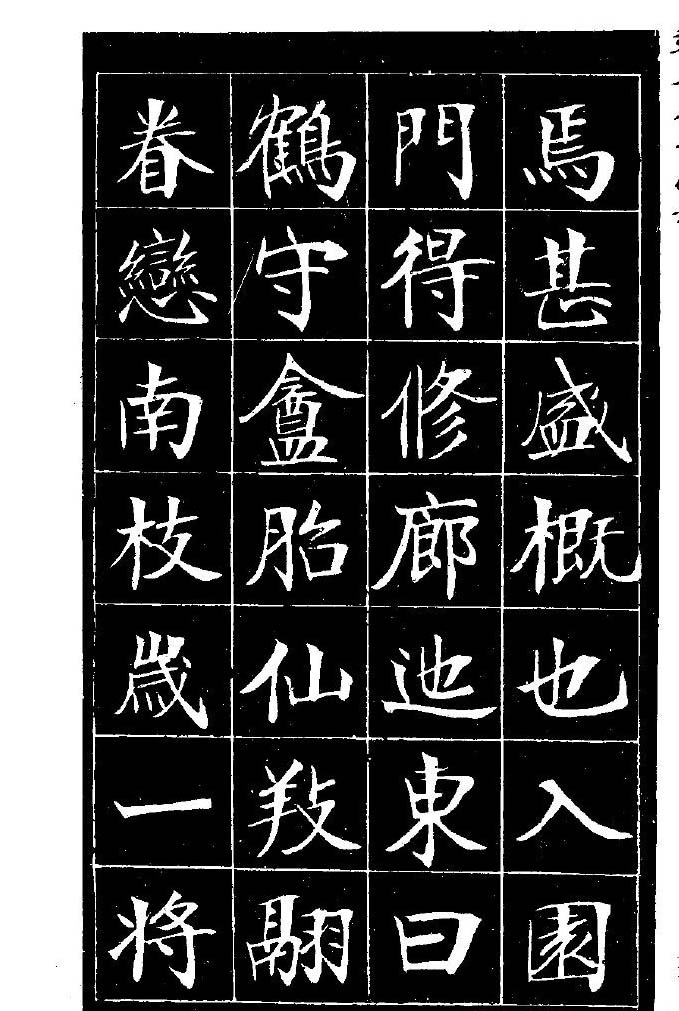 焉甚盛概也入園
門得修廊迆東曰
鶴守盦胎仙羖翮
眷戀南枝歲一將